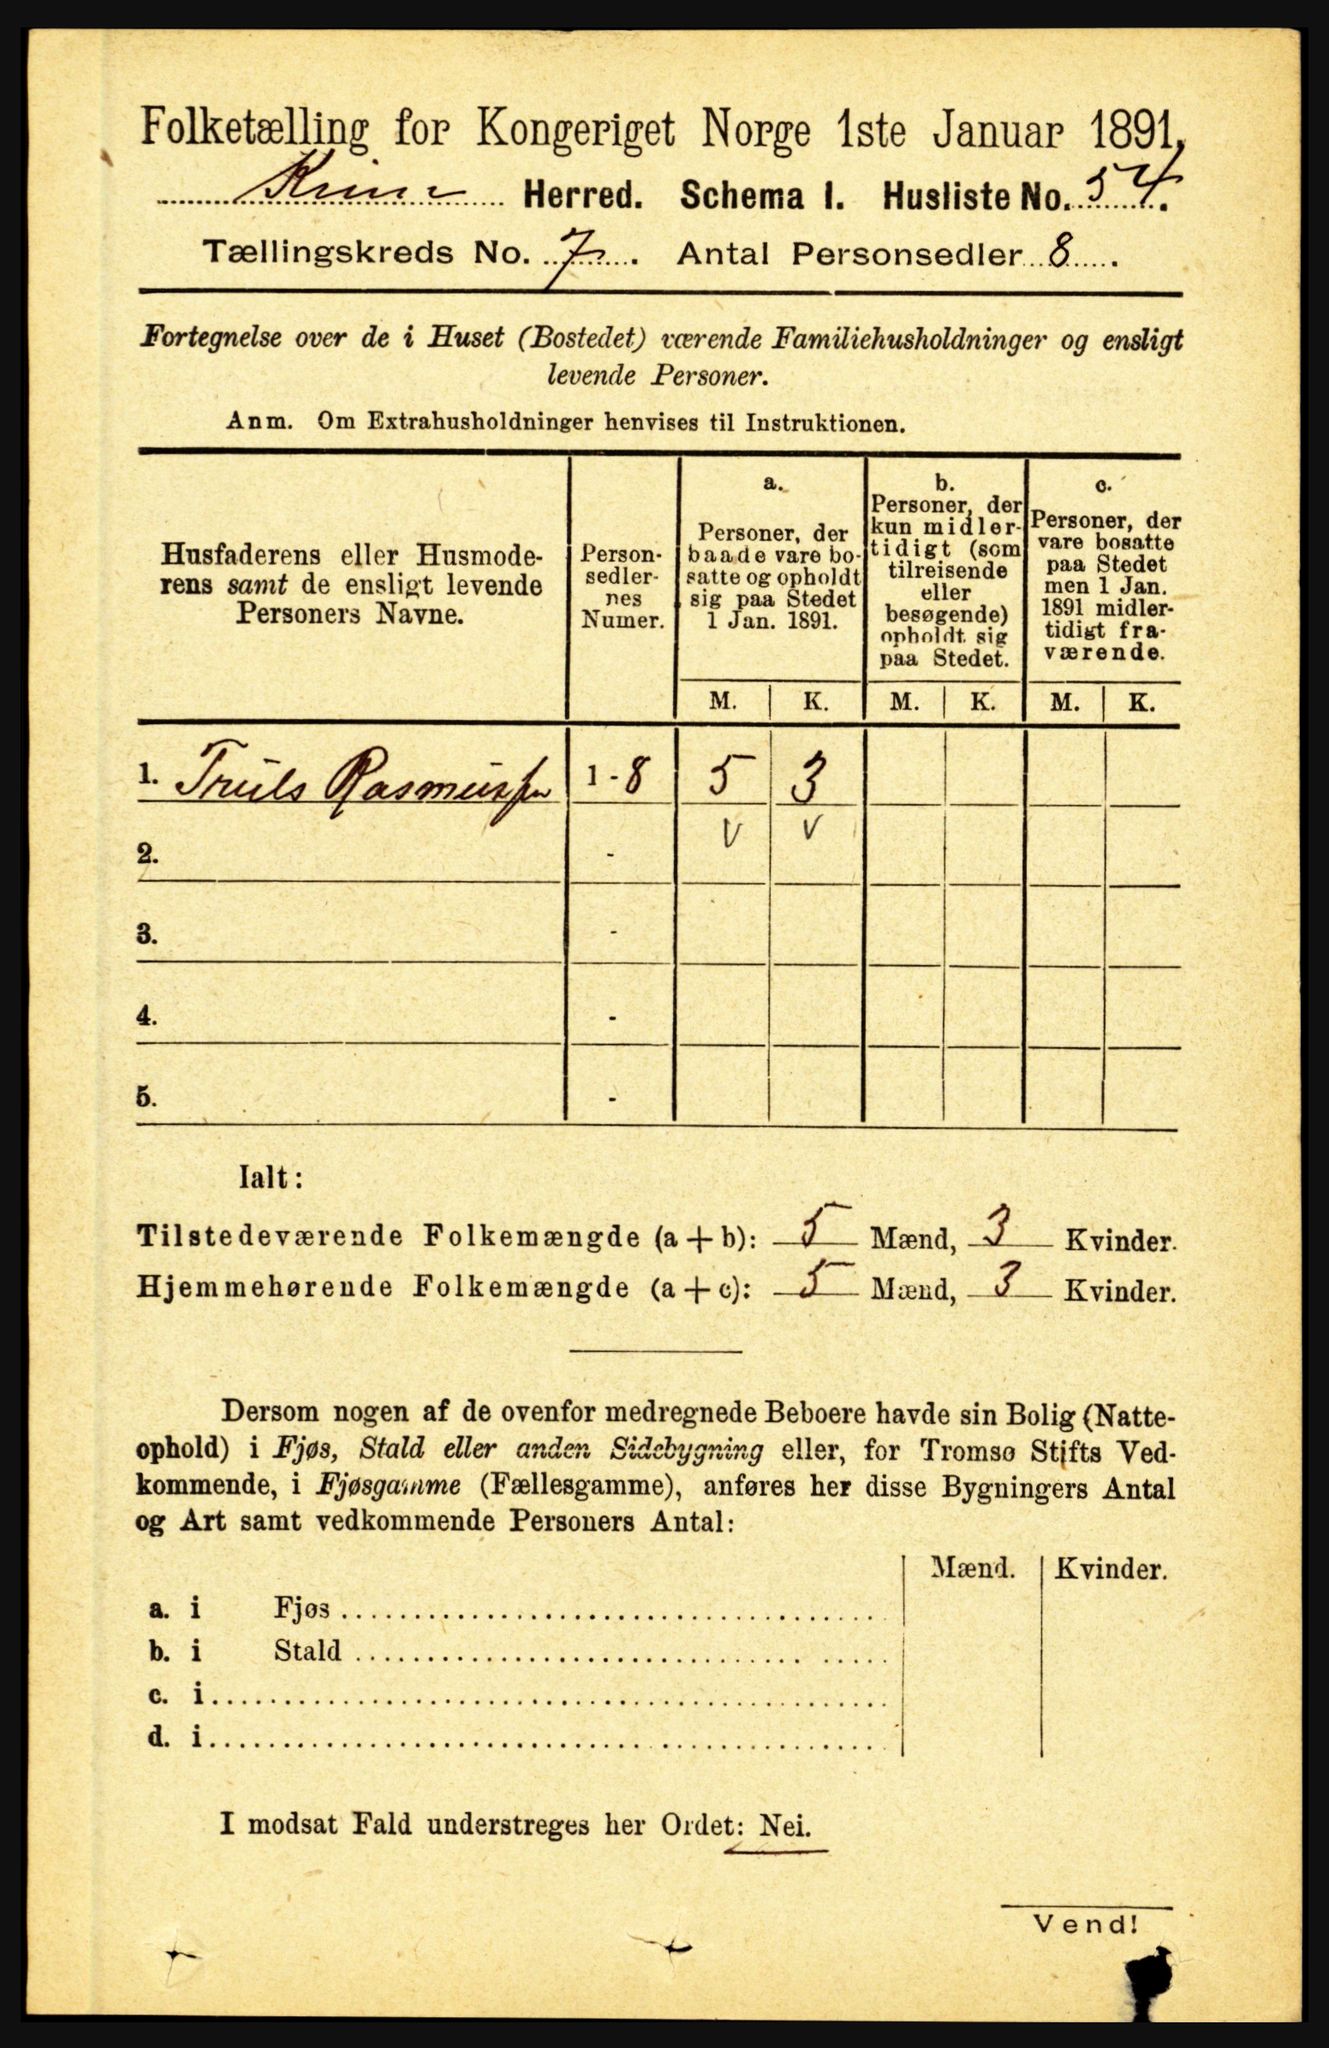 Folketælling for Kongeriget Norge 1ste Januar 1891.
Kinn Herred. Schema I. Husliste No. 54.
Tællingskreds No. 7. Antal Personsedler 8.
Fortegnelse over de i Huset (Bostedet) værende Familiehusholdninger og ensligt
levende Personer.
Anm. Om Extrahusholdninger henvises til Instruktionen.
Husfaderens eller Husmode-
rens samt de ensligt levende
Personers Navne.
Person-
sedler-
nes
Numer.
a.
Personer, der
baade vare bo-
satte og opholdt
sig paa Stedet
1 Jan. 1891.
b.
Personer, der
kun midler-
tidigt (som
tilreisende
eller
besøgende)
opholdt sig
paa Stedet.
c.
Personer, der
vare bosatte
paa Stedet
men 1 Jan.
1891 midler-
tidigt fra-
værende.
M. K. M. K. M. K.
1. Truls Rasmussen 1 - 8 5 3
2. - V V
3. -
4. -
5. -
Ialt:
Tilstedeværende Folkemængde (a + b): 5 Mænd, 3 Kvinder.
Hjemmehørende Folkemængde (a + c): 5 Mænd, 3 Kvinder.
Dersom nogen af de ovenfor medregnede Beboere havde sin Bolig (Natte-
ophold) i Fjøs, Stald eller anden Sidebygning eller, for Tromsø Stifts Ved-
kommende, i Fjøsgamme (Fællesgamme), anføres her disse Bygningers Antal
og Art samt vedkommende Personers Antal:
Mænd. Kvinder.
a. i Fjøs
b. i Stald
c. i
d. i
I modsat Fald understreges her Ordet: Nei.
Vend!